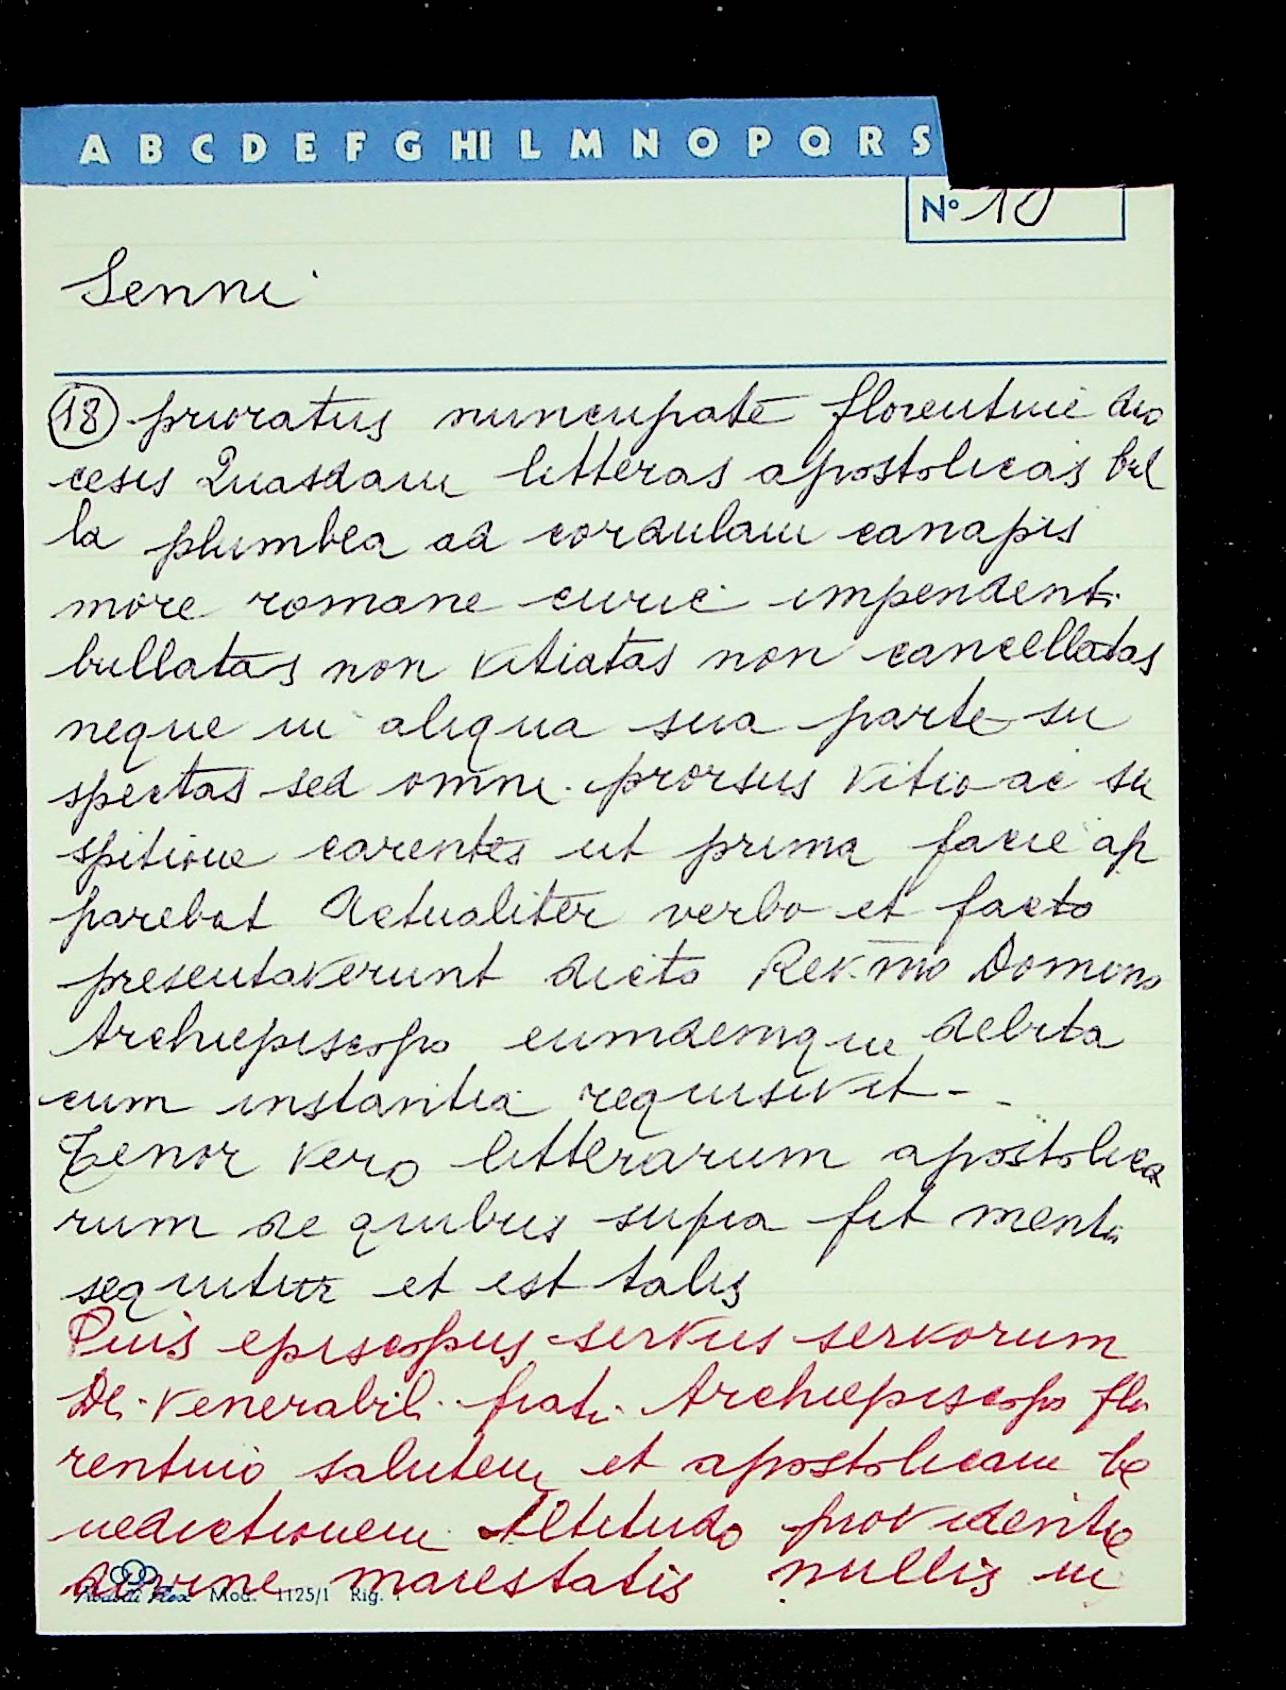 A B C D E F G HI L M N O P Q R S
N° 18
Senni
18 prioratus nuncupate florentine dio
cesis Quasdam litteras apostolicas bul
la plumbea ad cordulam canapis
more romane curie impendenti
bullatas non vitiatas non cancellatas
neque in aliqua sua parte su
spectas sed omni prorsus vitio ac su
spitione carentes ut prima facie ap
parebat Actualiter verbo et facto
presentaverunt dicto Rev.mo Domino
Archiepiscopo eumdemque debita
cum instantia requisivit - -
Tenor vero litterarum apostolica
rum de quibus supra fit mentio
sequitur et est talis
Pius episcopus servus servorum
Dei. Venerabili. frati. Archiepiscopo flo
rentino salutem et apostolicam be
nedictionem Altitudo providentie
divine maiestatis nullis in
Mod. 1125/1 Rig. 1